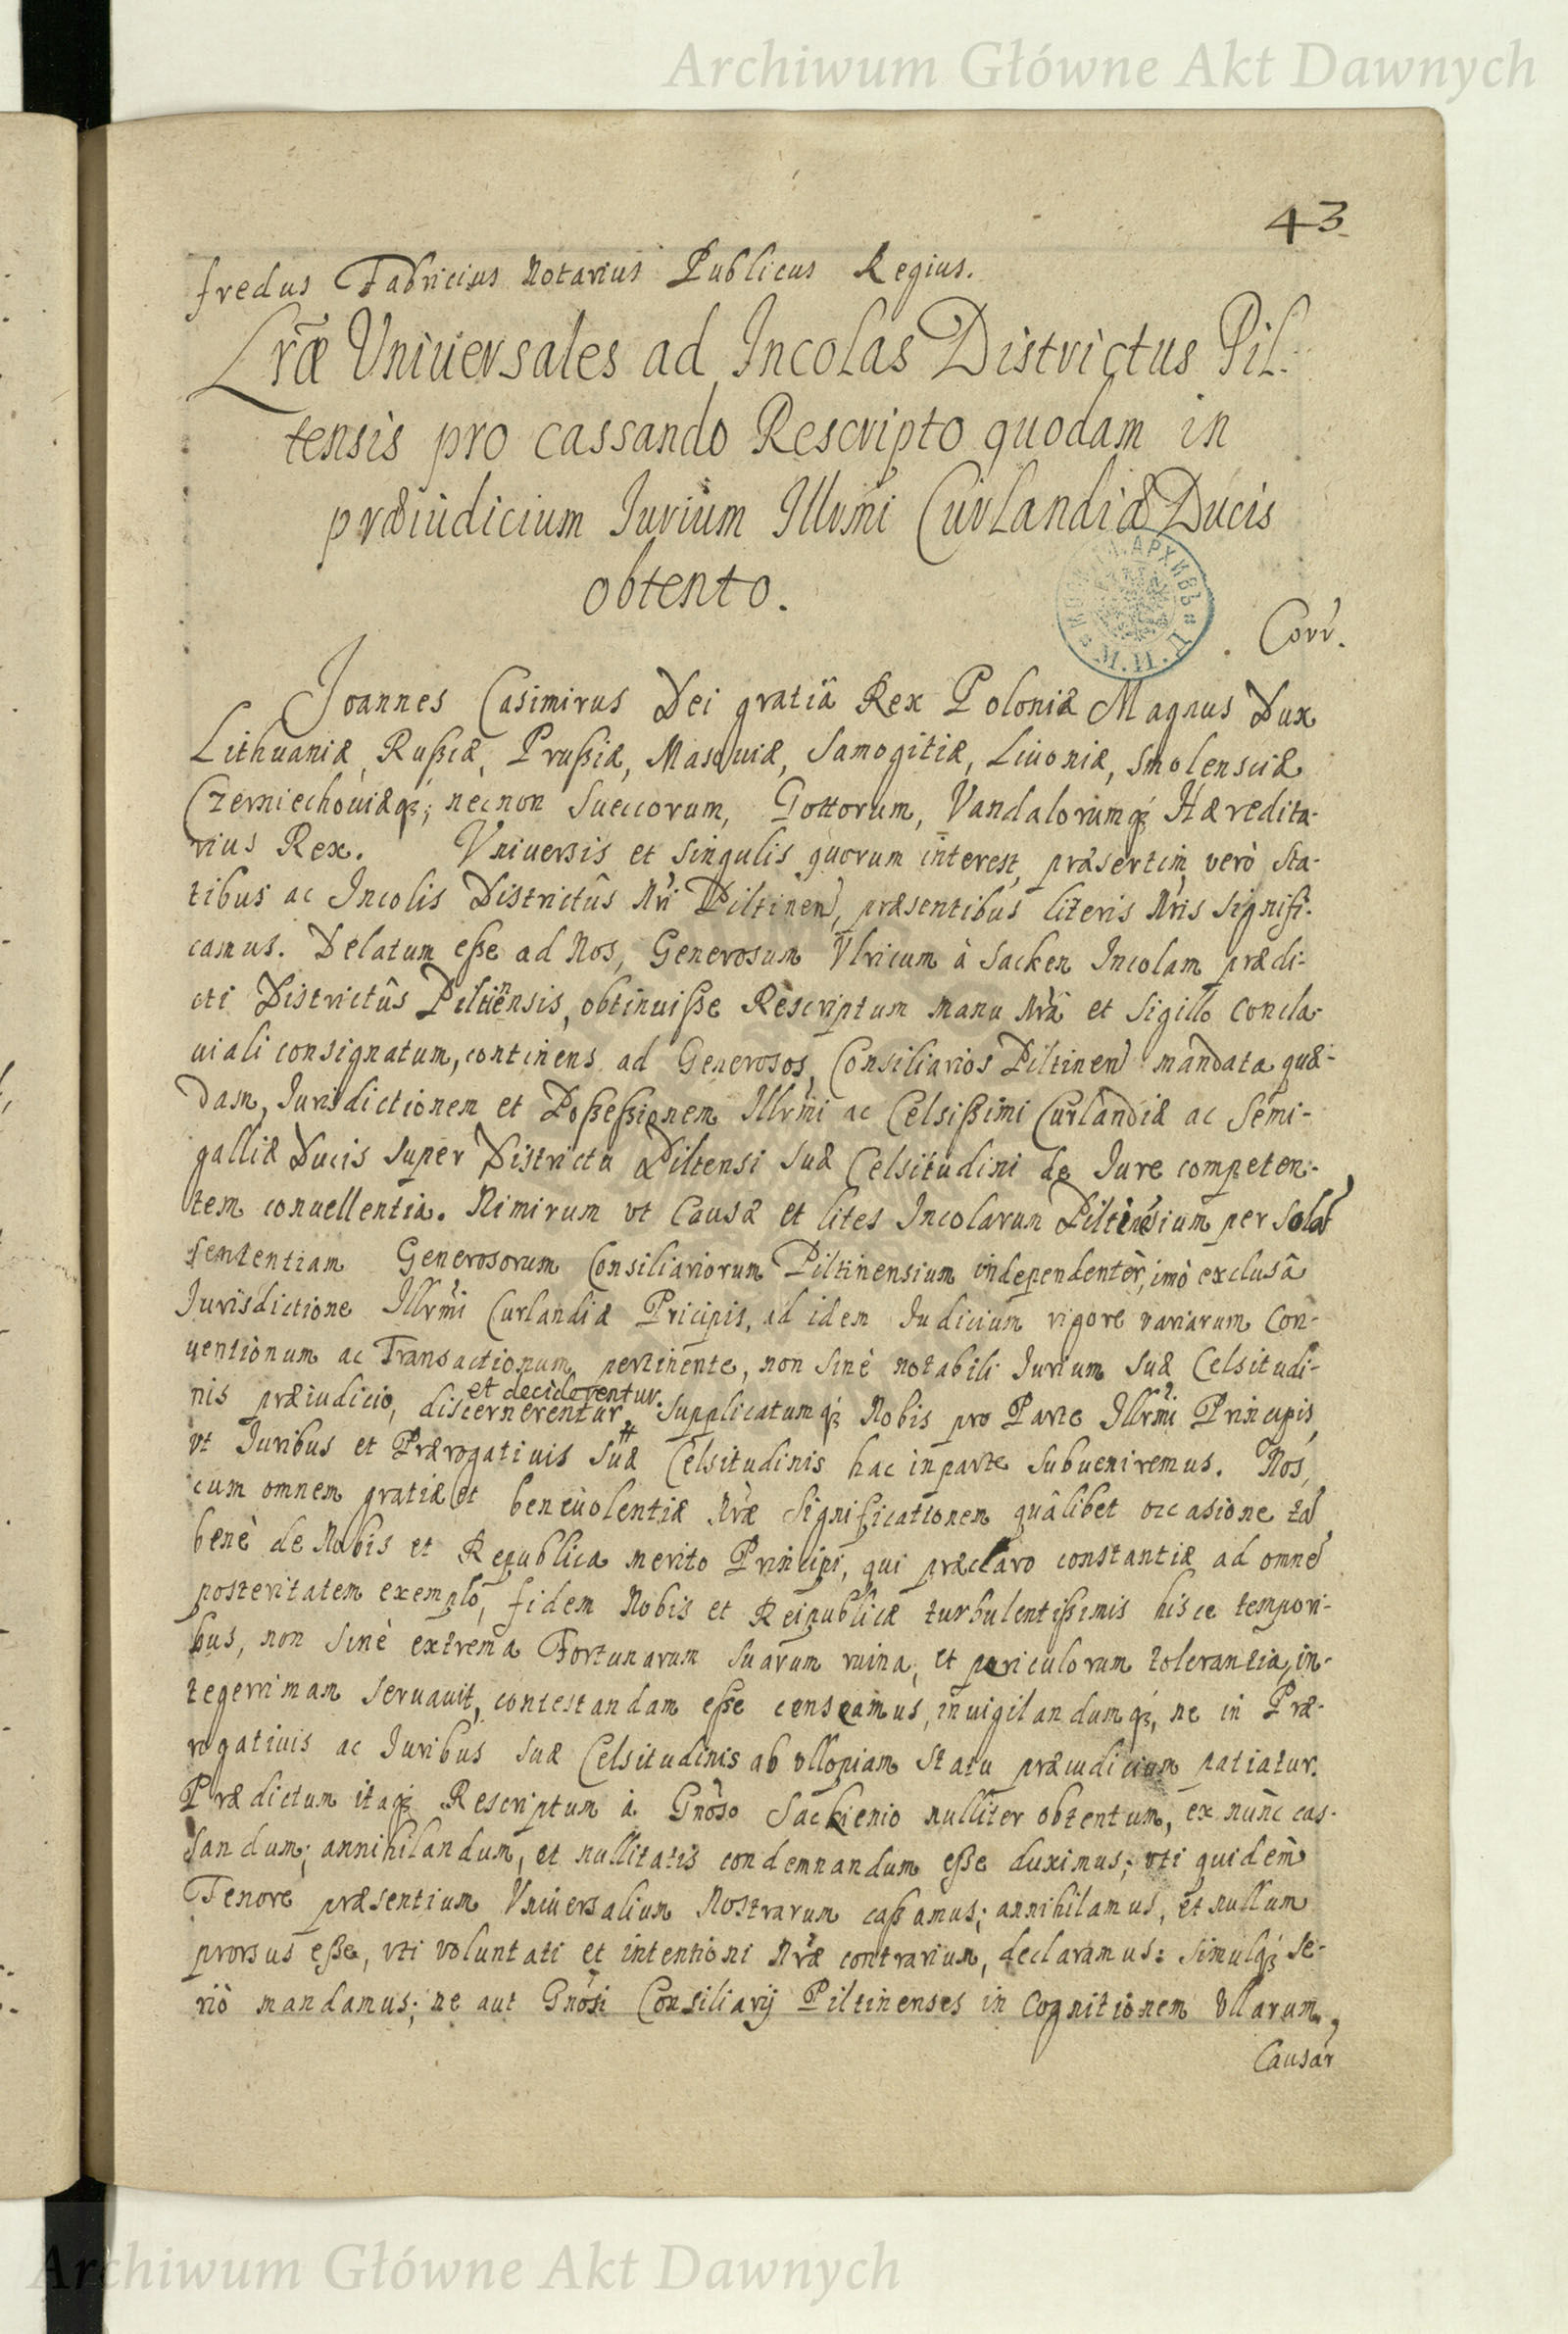 Archiwum Główne Akt Dawnych
43
fredus Fabricius Notarius Publicus Regius.
Lræ Vniuersales ad Incolas Districtus Pil-
tensis pro cassando Rescripto quodam in
præiudicium Iurium Illrmi Curlandiæ Ducis
obtento.
Corr.
Joannes Casimirus Dei gratiâ Rex Poloniæ Magnus Dux
Lithuaniæ, Rußiæ, Prußiæ, Masouiæ, Samogitiæ, Liuoniæ, Smolensciæ
Czerniechouiæq3; necnon Sueccorum, Gottorum, Vandalorumq3 Hæredita-
rius Rex. Vniuersis et singulis quorum interest, præsertim verò Sta-
tibus ac Incolis Districtûs Nri Piltinen, præsentibus literis Nris signifi-
camus. Delatum eße ad Nos, Generosum Vlricum à Sacken Incolam prædi-
cti Districtûs Piltinensis, obtinuiße Rescriptum manu Nrâ et Sigillo Concla-
uiali consignatum, continens ad Generosos, Consiliarios Piltinen mandata quæ-
dam, Jurisdictionem et Poßeßionem Illrmi ac Celsißimi Curlandiæ ac Semi-
galliæ Ducis super Districtu Piltensi Suæ Celsitudini de Iure competen-
tem conuellentia. Nimirum vt Causæ et lites Incolarum Piltinesium per Sola
sententiam Generosorum Consiliariorum Piltinensium independentèr, imò exclusâ
Iurisdictione Illrmi Curlandiæ Pricipis, ad idem Iudicium vigore variarum Con-
uentionum ac Transactionum pertinente, non sinè notabili Iurium Suæ Celsitudi-
et deciderentur.
nis præiudicio, discernerentur, Supplicatumq3 Nobis pro Parte Illrmi Principis,
vt Iuribus et Prærogatiuis Suæ Celsitudinis hac in parte subueniremus. Nos,
cum omnem gratiæ et beneuolentiæ Nræ Significationem quâlibet occasione ta
benè de Nobis et Republica merito Principi, qui præclaro constantiæ ad omne
posteritatem exemplo, fidem Nobis et Reipublicæ turbulentißimis hisce tempori-
bus, non sinè extrema Fortunarum suarum ruina, et periculorum tolerantia, in-
tegerrimam seruauit, contestandam eße censeamus, inuigilandumq3, ne in Præ-
rogatiuis ac Iuribus suæ Celsitudinis ab vllopiam statu præiudicium patiatur.
Prædictum itaq3 Rescriptum à Gnoso Sackienio nulliter obtentum, ex nunc cas-
sandum; annihilandum, et nullitatis condemnandum eße duximus; vti quidem
Tenore præsentium Vniuersalium Nostrarum caßamus; annihilamus, et nullum
prorsus eße, vti voluntati et intentioni Nræ contrarium, declaramus: simulq3 se-
riò mandamus; ne aut Gnosi Consiliarij Piltinenses in Cognitionem vllarum,
Causar
Archiwum Główne Akt Dawnych